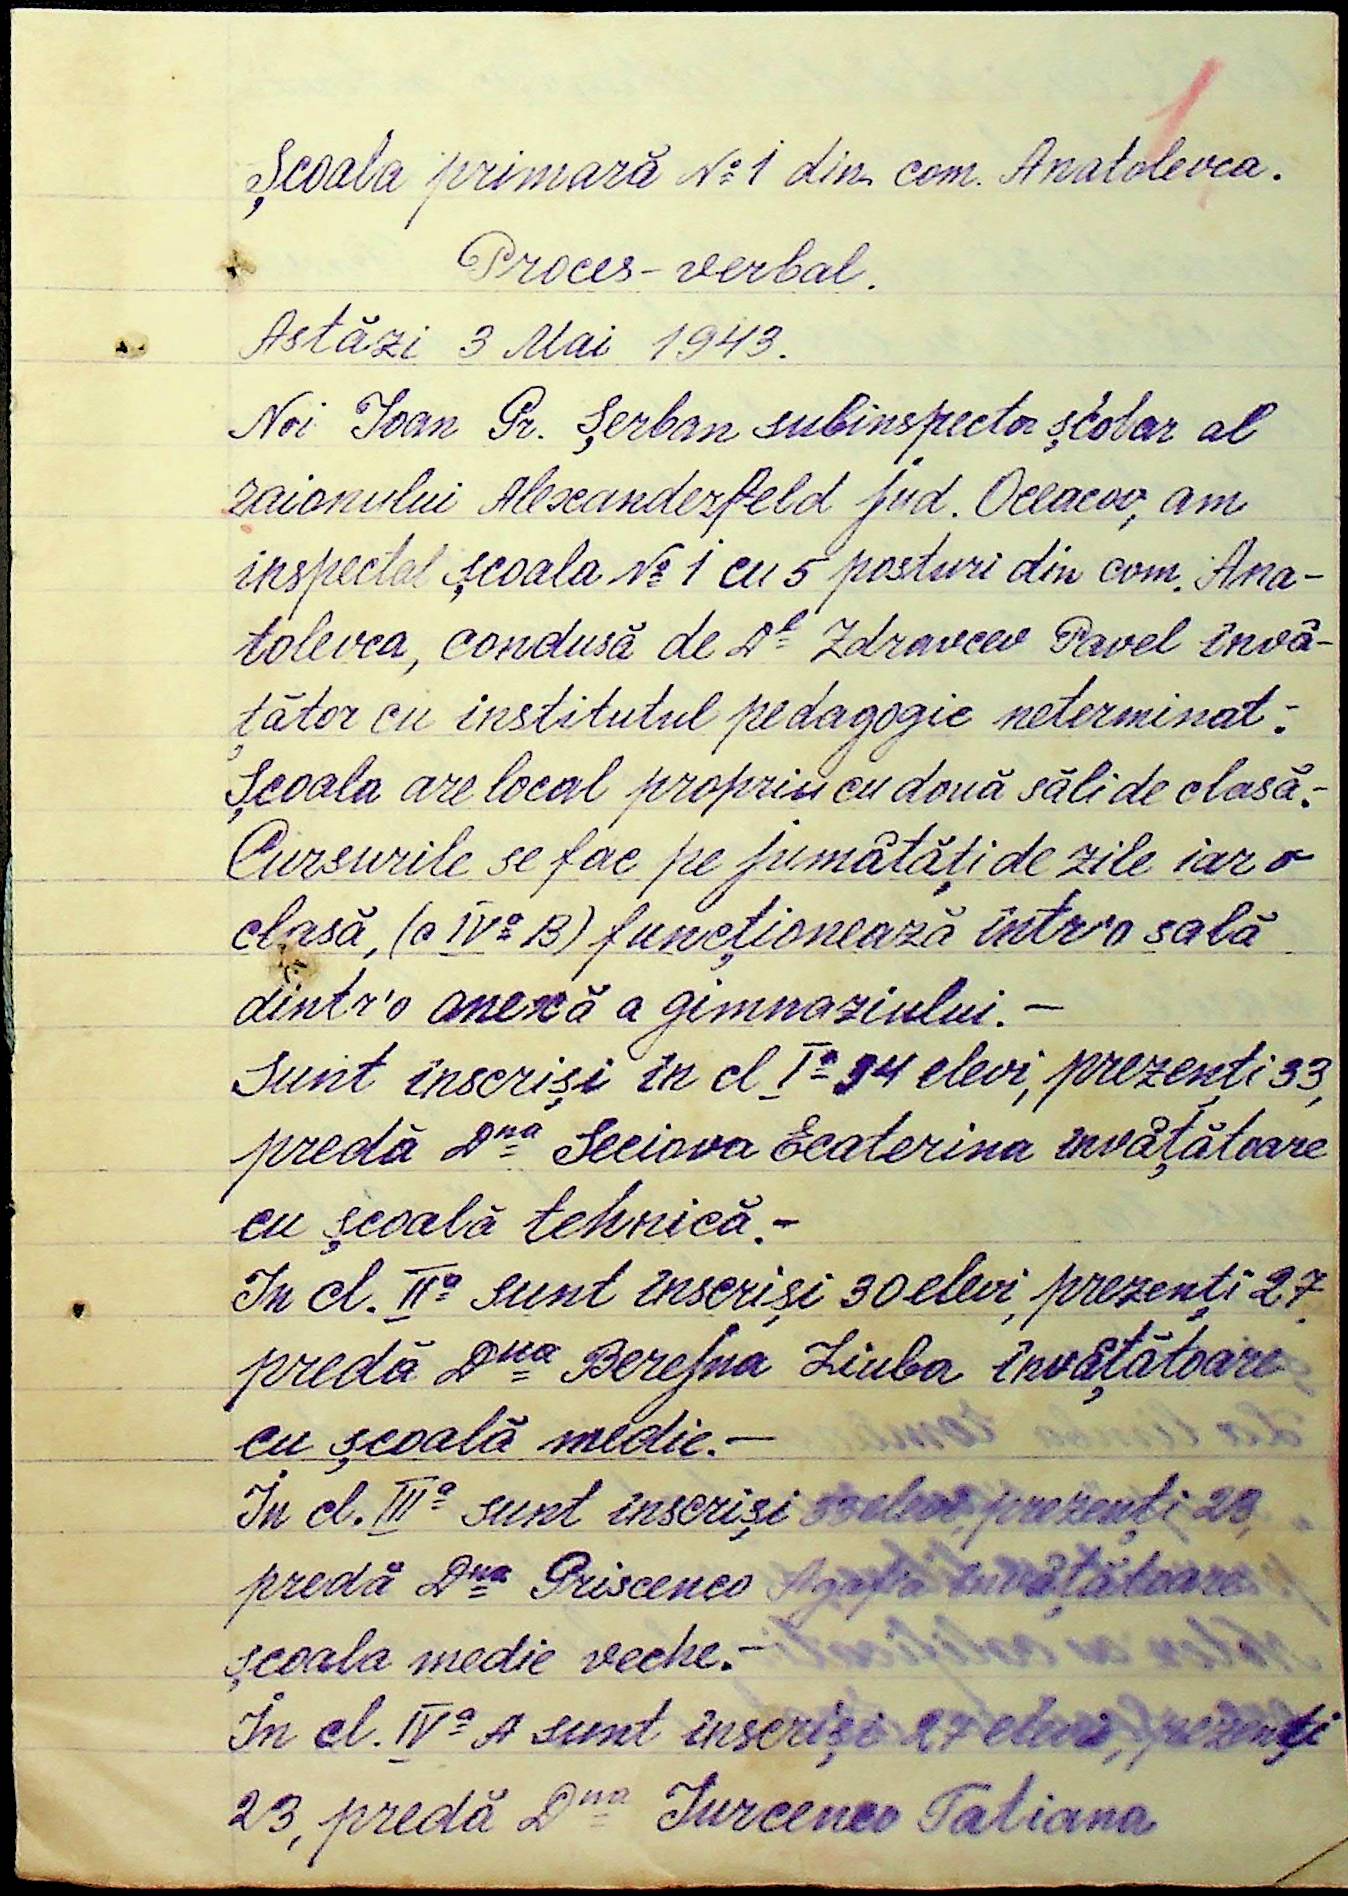 1
Școala primară No 1 din com. Anatolevca.
Proces-verbal.
Astăzi 3 Mai 1943.
Noi Ioan Gr. Șerban subinspector școlar al
raionului Alexanderfeld jud. Oceacov, am
inspectat școala No 1 cu 5 posturi din com. Ana-
tolevca, condusă de Dl Zdravcev Pavel învă-
țător cu institutul pedagogic neterminat.-
Școala are local propriu cu două săli de clasă.-
Cursurile se fac pe jumătăți de zile iar o
clasă, (a IVa B) funcționează într'o sală
dintr'o anexă a gimnaziului.-
Sunt înscriși în cl Ia 34 elevi, prezenți 33,
predă Dna Seciova Ecaterina învățătoare
cu școală tehnică.-
In cl. IIa sunt înscriși 30 elevi, prezenți 27,
predă Dna Liuba învățătoare
cu școală medie.-
În cl. IIIa sunt înscriși 33 elevi, prezenți 28,
predă Dna Griscenco Agafia învățătoare
școala medie veche.-
În cl. IVa A sunt înscriși 27 elevi, prezenți
23, predă Dna Iurcenco Tatiana